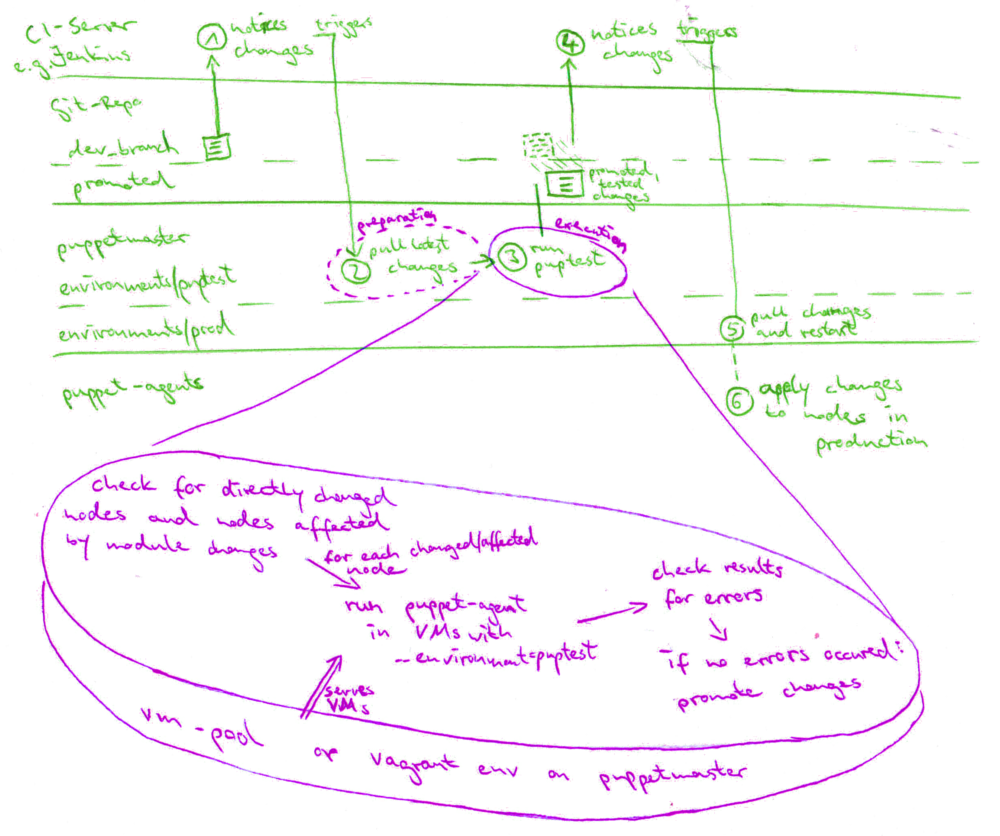 CI-Server
e.g. Jenkins
1 notices
changes
triggers
4 notices
changes
triggers
Git-Repo
dev_branch
promoted
promoted,
tested
changes
puppetmaster
environments/puptest
environments/prod
preparation
2 pull latest
changes
execution
3 run
puptest
5 pull changes
and restart
puppet-agents
6 apply changes
to nodes in
production
check for directly changed
nodes and nodes affected
by module changes
for each changed/affected
node
run puppet-agent
in VMs with
--environment=puptest
check results
for errors
if no errors occured:
promote changes
serves
VMs
vm-pool or vagrant env on puppetmaster